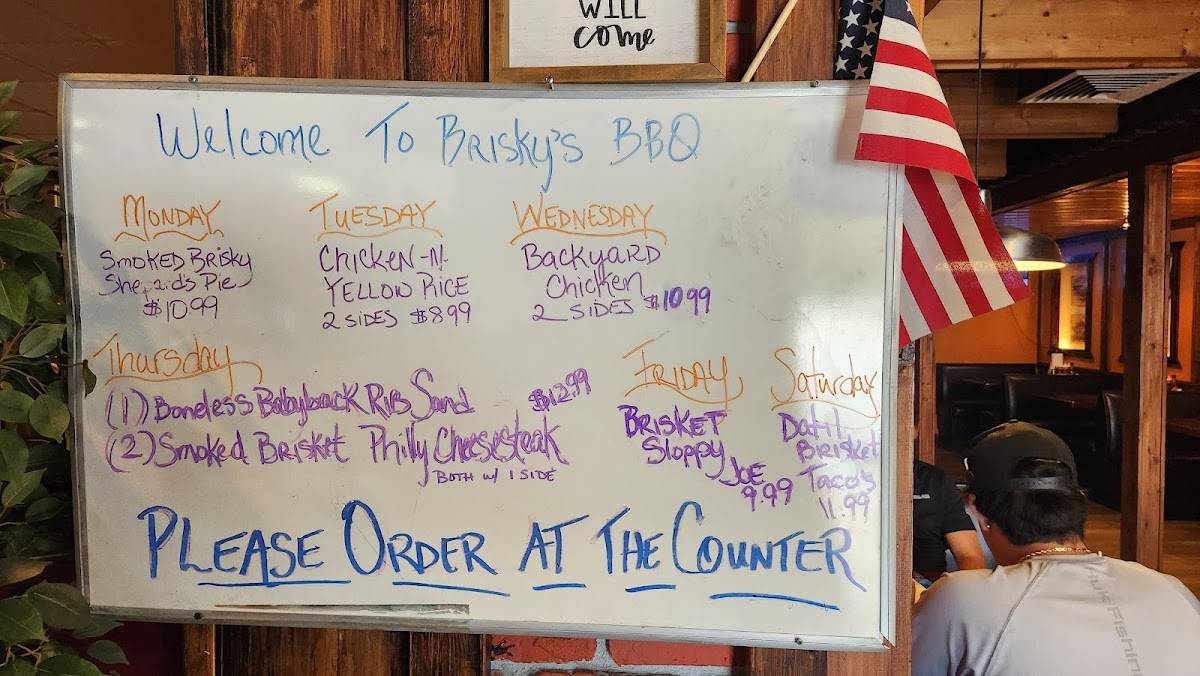 WILL
come
Welcome To Brisky's BBQ
MONDAY
SMOKED BRISKY
Pie
$10.99
TUESDAY
CHICKEN-N-
YELLOW RICE
2 SIDES $8.99
WEDNESDAY
BACKYARD
Chicken
2 SIDES $10.99
Thursday
(1) Boneless Babyback RIB Sand $12.99
(2) Smoked BRISKET Philly Cheesesteak
BOTH w/ 1 SIDE
FRIDAY
BRISKET
Sloppy
JOE
9.99
Saturday
Datil
BRISKET
Taco's
11.99
PLEASE ORDER AT THE COUNTER
Fishing